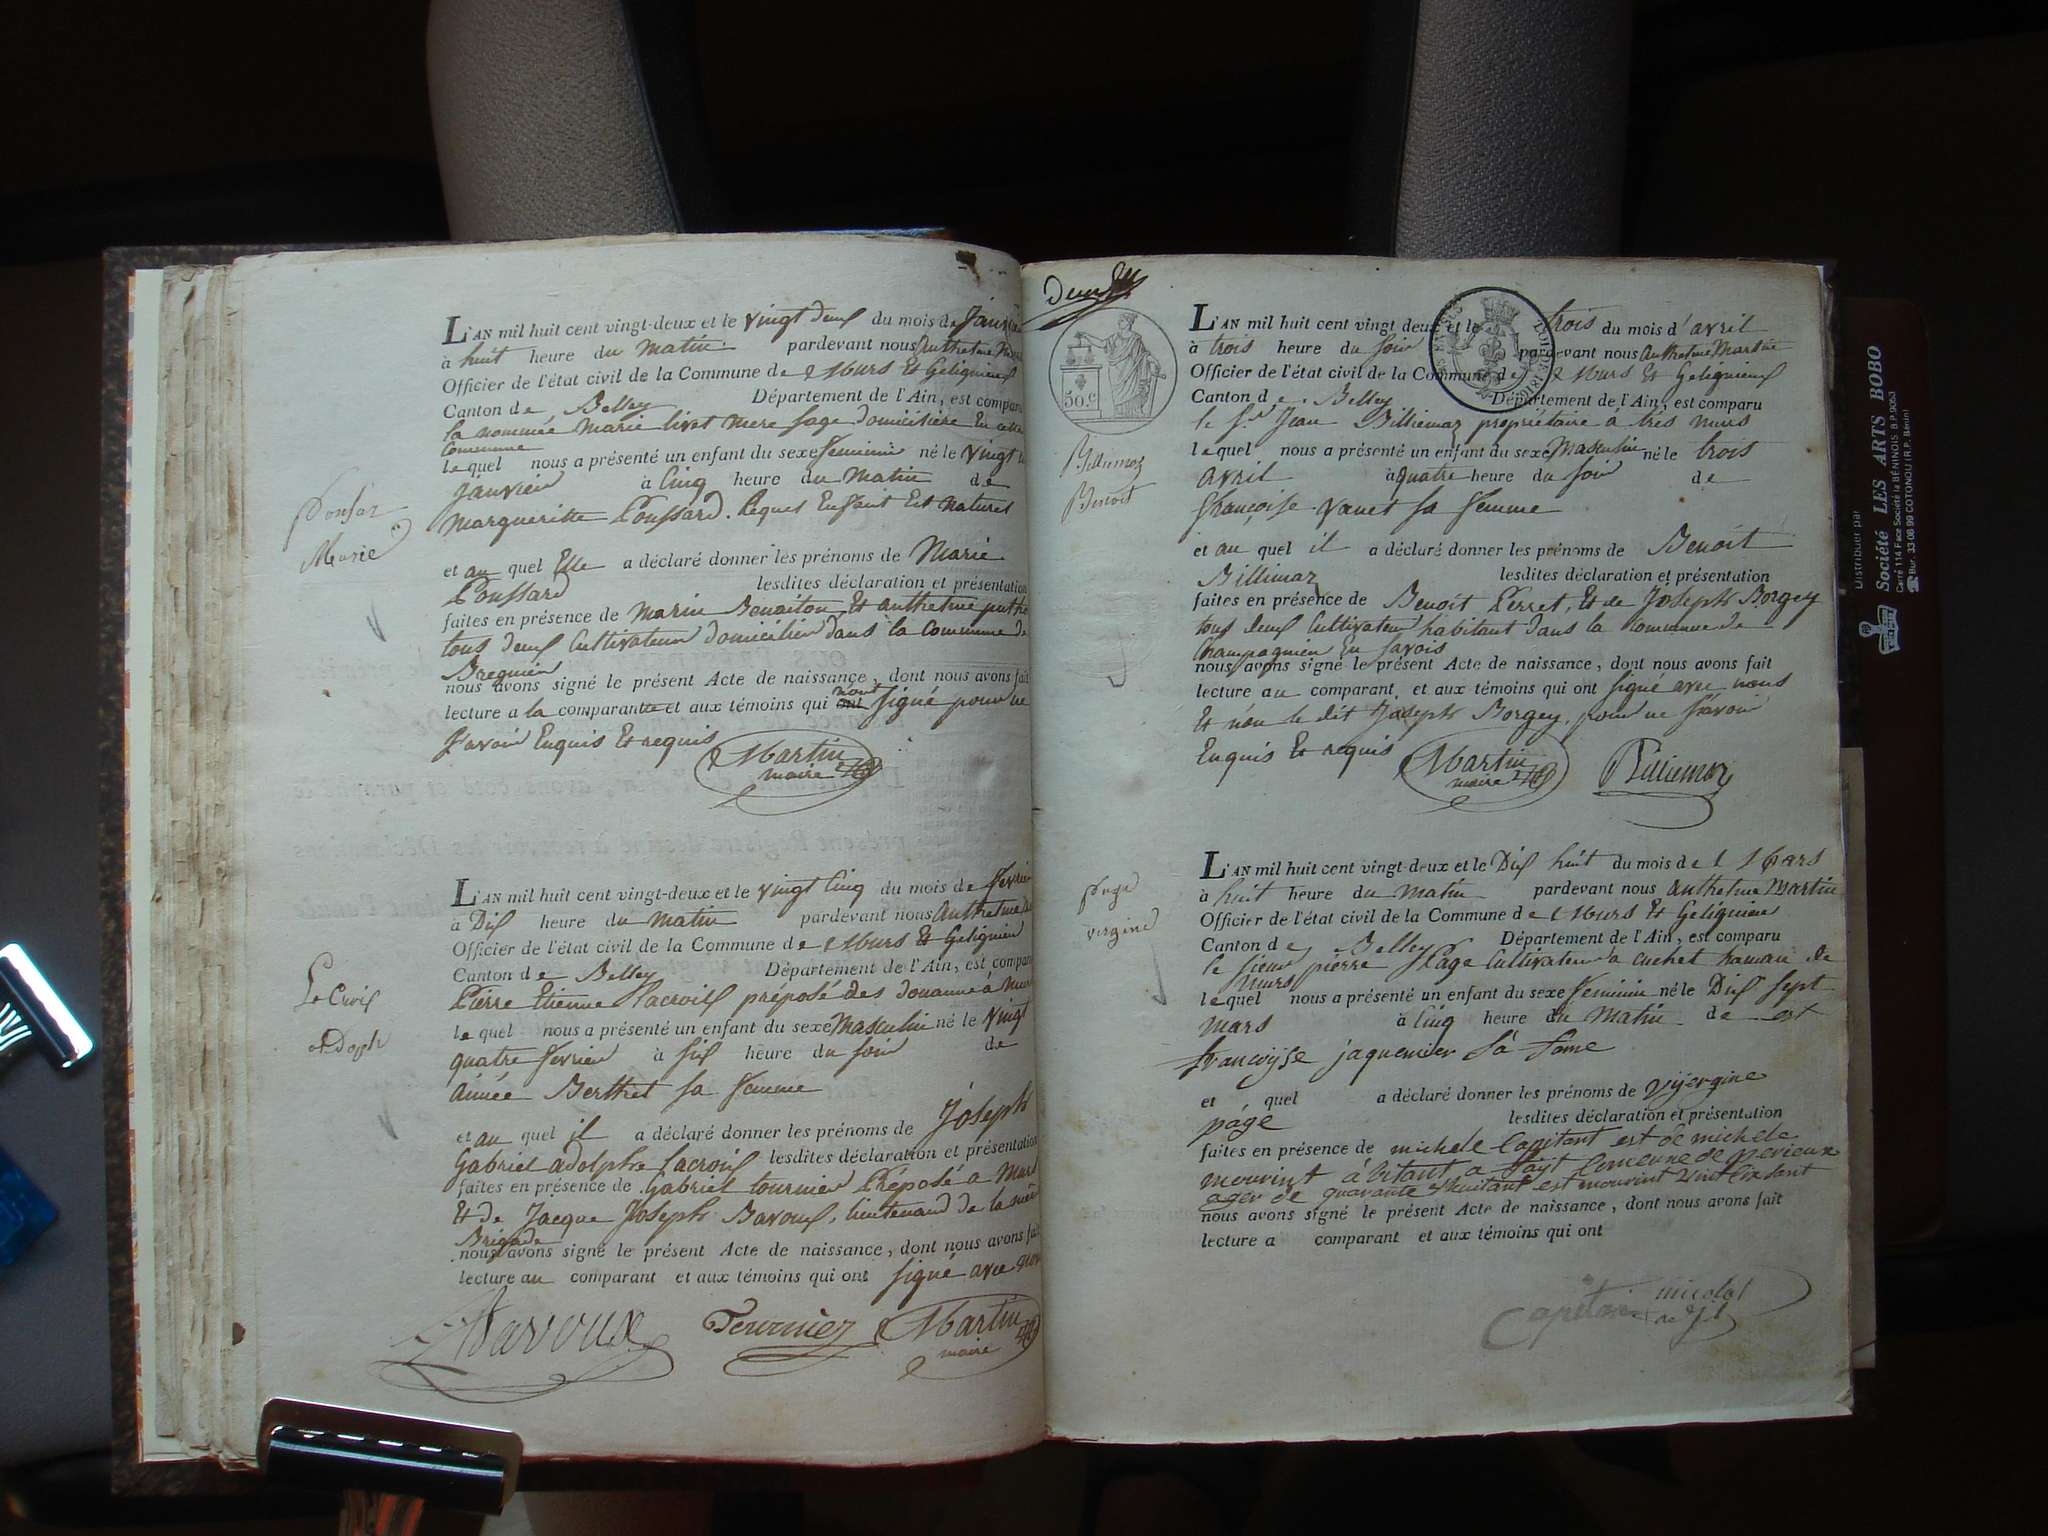 L'AN mil huit cent vingt-deux et le vingt deux du mois de Janvier
à huit heure du matin pardevant nous Anthelme
Officier de l'état civil de la Commune de Murs et Geligneux
Canton de Belley Département de l'Ain, est comparu
la nommée Marie livet mere sage domiciliere En cette
Commune
le quel nous a présenté un enfant du sexe feminin né le vingt
janvier à Cinq heure du Matin de
Margueritte Poussard. Leques Enfant Est naturel
et au quel Elle a déclaré donner les prénoms de Marie
Poussard lesdites déclaration et présentation
faites en présence de Marin Benoiton Et anthelme
tous deux Cultivateur domicilier dans la Commune de
Bregnier
nous avons signé le présent Acte de naissance, dont nous avons fait
lecture a la comparante et aux témoins qui ont nont signé pour ne
savoir Enquis Et requis
Martin
maire
Marie
L'AN mil huit cent vingt-deux et le vingt Cinq du mois de fevrier
à Dix heure du matin pardevant nous Anthelme
Officier de l'état civil de la Commune de Murs Et Gelignieu
Canton de Belley Département de l'Ain, est comparu
Pierre Etienne Lacroix préposé des douanne à Murs
le quel nous a présenté un enfant du sexe Masculin né le vingt
quatre fevrier à six heure du soir de
Année Berthet sa femme
et au quel il a déclaré donner les prénoms de Joseph
Gabriel adolphe Lacroix lesdites déclaration et présentation
faites en présence de Gabriel tournier Préposé a Murs
Et de Jacque Joseph Bavoux, lieutenand de la
Brigade
nous avons signé le présent Acte de naissance, dont nous avons fait
lecture au comparant et aux témoins qui ont signé avec nous
Bavoux Tournier Martin
maire
LeCroix
adolph
50.c
L'AN mil huit cent vingt deux et le trois du mois d'avril
à trois heure du soir pardevant nous Anthelme Martin
Officier de l'état civil de la Commune de Murs Et Geligneux
Canton de Belley Département de l'Ain, est comparu
le Sr Jean Billiemaz propriétaire à très murs
le quel nous a présenté un enfant du sexe Masculin né le trois
avril à quatre heure du soir de
françoise vanet sa femme
et au quel il a déclaré donner les prénoms de Benoit
Billimaz lesdites déclaration et présentation
faites en présence de Benoit Perret, Et de Joseph Borgey
tous deux Cultivateur habitant dans la Commune de
Champagnieu En Savois
nous avons signé le présent Acte de naissance, dont nous avons fait
lecture au comparant et aux témoins qui ont signé avec nous
Et non le dit Joseph Borgey, pour ne savoir
Enquis Et requis
Martin
maire
Billiemaz
Billiemaz
Benoit
L'AN mil huit cent vingt-deux et le Dix huit du mois de Mars
à huit heure du matin pardevant nous Anthelme Martin
Officier de l'état civil de la Commune de Murs Et Gelignieu
Canton de Belley Département de l'Ain, est comparu
le sieur pierre Page Cultivateur à cuchet hamau de
Murs
le quel nous a présenté un enfant du sexe feminin né le Dix sept
mars à Cinq heure du Matin de est
francoysse jaquemier sa fame
et quel a déclaré donner les prénoms de vijergine
páge lesdites déclaration et présentation
faites en présence de michele Capitant est de michele
mourint à
ager de quarante est mourint
nous avons signé le présent Acte de naissance, dont nous avons fait
lecture a comparant et aux témoins qui ont
micolat
Capitan
Page
virgine
Distribuer par
Société LES ARTS BOBO
Carré 114 Face Société la BÉNINOIS B.P. 9053
Bur. 33 08 99 COTONOU (R.P. Bénin)